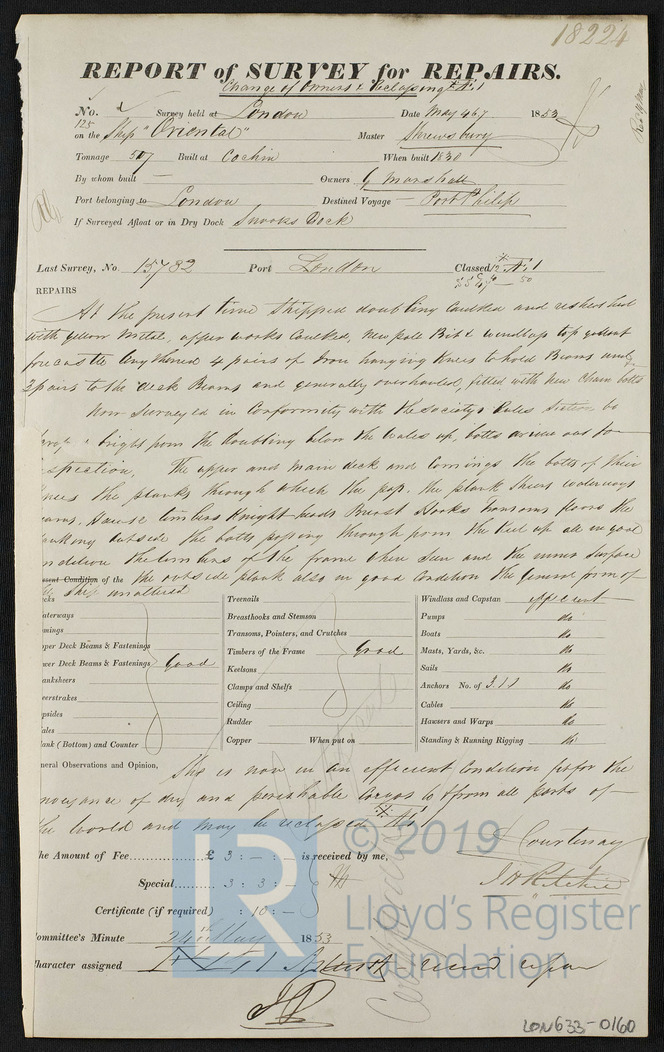 18224
REPORT of SURVEY for REPAIRS.
Change of Owners & Reclassing Æ 1
No. 125 Survey held at London Date May 4 & 7 1853
on the Ship "Oriental" Master Shrewsbury
Tonnage 507 Built at Cochin When built 1830
By whom built — Owners G Marshall
Port belonging to London Destined Voyage Port Philip
If Surveyed Afloat or in Dry Dock Snooks Dock
Last Survey, No. 15782 Port London Classed Æ 1
REPAIRS
At the present time Stripped doubling Caulked and resheathed
with yellow Metal, upper works Caulked, New pall Bitt & windlass top gallant
forecastle lengthened 4 pairs of Iron hanging Knees to hold Beams and
3 pairs to the deck Beams and generally overhauled, fitted with New Chain bolts
Now Surveyed in Conformity with the Society's Rules
bright from the doubling below the Wales up, bolts driven out for
spection. The upper and main deck and Comings the bolts of their
nees the planks through which the pass. the plank Sheers waterways
eams. Hawse timbers Knight heads Breast Hooks transoms floors the
aulking outside the bolts passing through from the Keel up all in good
ndition The timbers of the frame when seen and the inner surface
esent Condition of the the outside plank also in good Condition the general form of
the Ship unaltered
cks Treenails Windlass and Capstan efficient
aterways Breasthooks and Stemson Pumps do
mings Transoms, Pointers, and Crutches Boats do
per Deck Beams & Fastenings Timbers of the Frame Good Masts, Yards, &c. do
wer Deck Beams & Fastenings Good Keelsons Sails do
anksheers Clamps and Shelfs Anchors No. of 3.1.1 do
erstrakes Ceiling Cables do
psides Rudder Hawsers and Warps do
ales Copper When put on Standing & Running Rigging do
lank (Bottom) and Counter
neral Observations and Opinion, She is now in an efficient Condition fit for the
nveyance of dry and perishable Cargoes to & from all parts of
the World and may be reclassed Æ 1
The Amount of Fee £ 3 : — : — is received by me, Courtenay
Special 3 : 3 : — J H Ritchie
Certificate (if required) : 10 : —
Committee's Minute 24th May 1853
Character assigned
© 2019
LR
Lloyd's Register
Foundation
LON633-0160